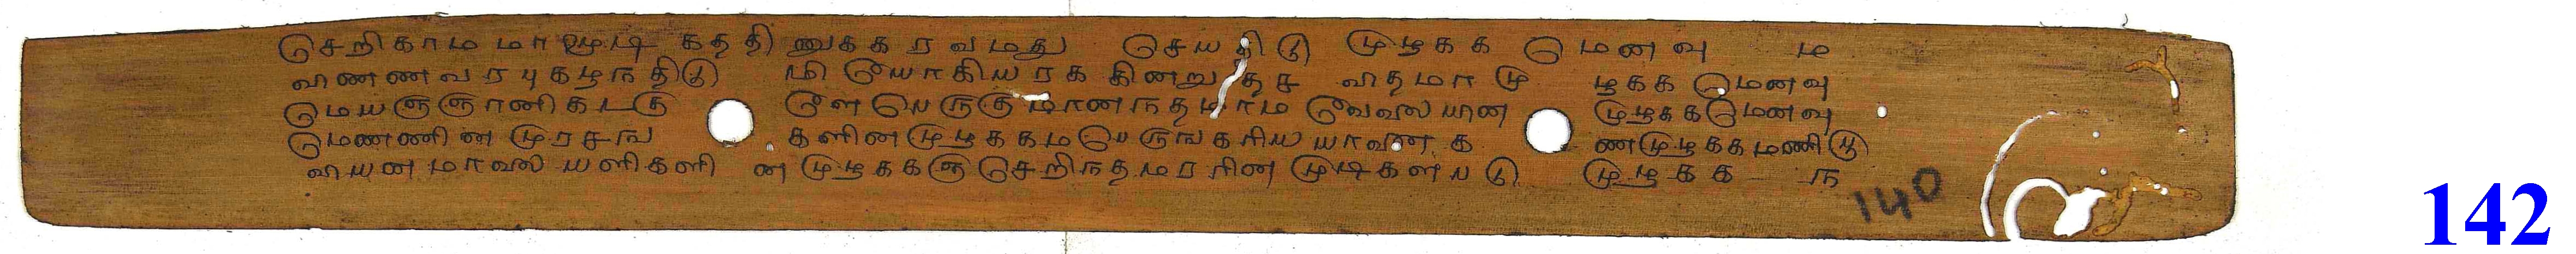 செறிகாமமாமூடி கததி னுககரவமது செயதிடு முழகக மெணவு ம
விணணவரபுகழநதிடு மி யோகியரக கினறு தச விதமாமு ழகக மெனவு
மெயஞஞானிகடகு ளெ பெருகுமானநதமாம வெவலையான முழககமெனவு
மெணணின முரசங களினமுழககமபெருஙகரிய யாவின க ணமுழககமணிமு
வியனமாவலை யளிகளி ன முழககஞசெறிநதமரரின முடிகளபடு முழகக ந
140
142